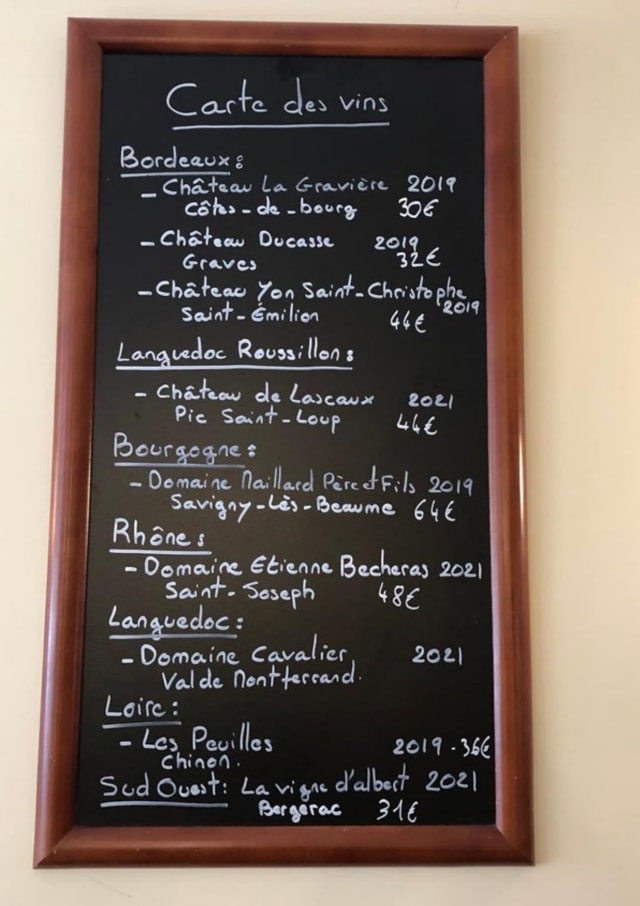 Carte des vins
Bordeaux :
- Château La Gravière 2019
Côtes-de-bourg 30€
- Château Ducasse 2019
Graves 32€
- Château Yon Saint-Christophe
2019
Saint-Émilion 44€
Languedoc Roussillon :
- Château de Lascaux 2021
Pic Saint-Loup 44€
Bourgogne :
- Domaine Maillard Père et Fils 2019
Savigny-Lès-Beaume 64€
Rhône :
- Domaine Etienne Becheras 2021
Saint-Joseph 48€
Languedoc :
- Domaine Cavalier 2021
Val de Montferrand.
Loire :
- Les Peuilles 2019-36€
Chinon.
Sud Ouest : La vigne d'albert 2021
Bergerac 31€